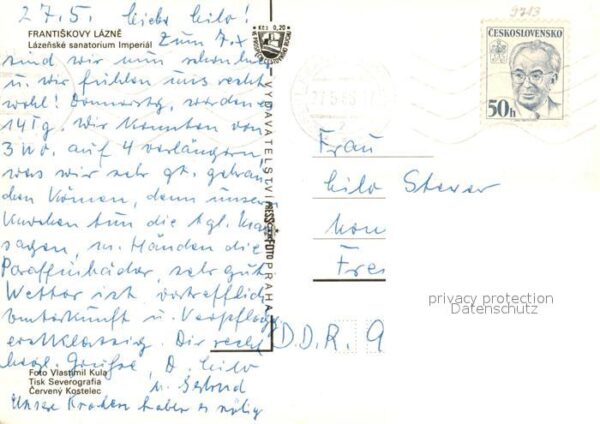 27.5. Liebe Lilo!
FRANTIŠKOVY LÁZNĚ
Lázeňské sanatorium Imperiál
Zum 7.x
sind wir nun schon hier
u. wir fühlen uns recht
wohl! Donnerstg. werden
14 Tg. Wir konnten von
3 Wo. auf 4 verlängern,
was wir sehr gt. gebrau
chen können, denn unsere
Knochen tun die tgl.
sagen, m. Händen die
Paraffinbäder, sehr gut
Wetter ist vortrefflich
Unterkunft u. Verpfleg
erstklassig. Dir recht
herzl. Grüße, D. Lilo
u. Gertrud
Unsere Knochen haben es nötig
Foto Vlastimil Kula
Tisk Severografia
Červený Kostelec
Kčs 0,20
VYDAVATELSTVÍ PRESSFOTO PRAHA
9713
ČESKOSLOVENSKO
50h
Frau
Lilo Stever
Frei
D.D.R. 9
privacy protection
Datenschutz